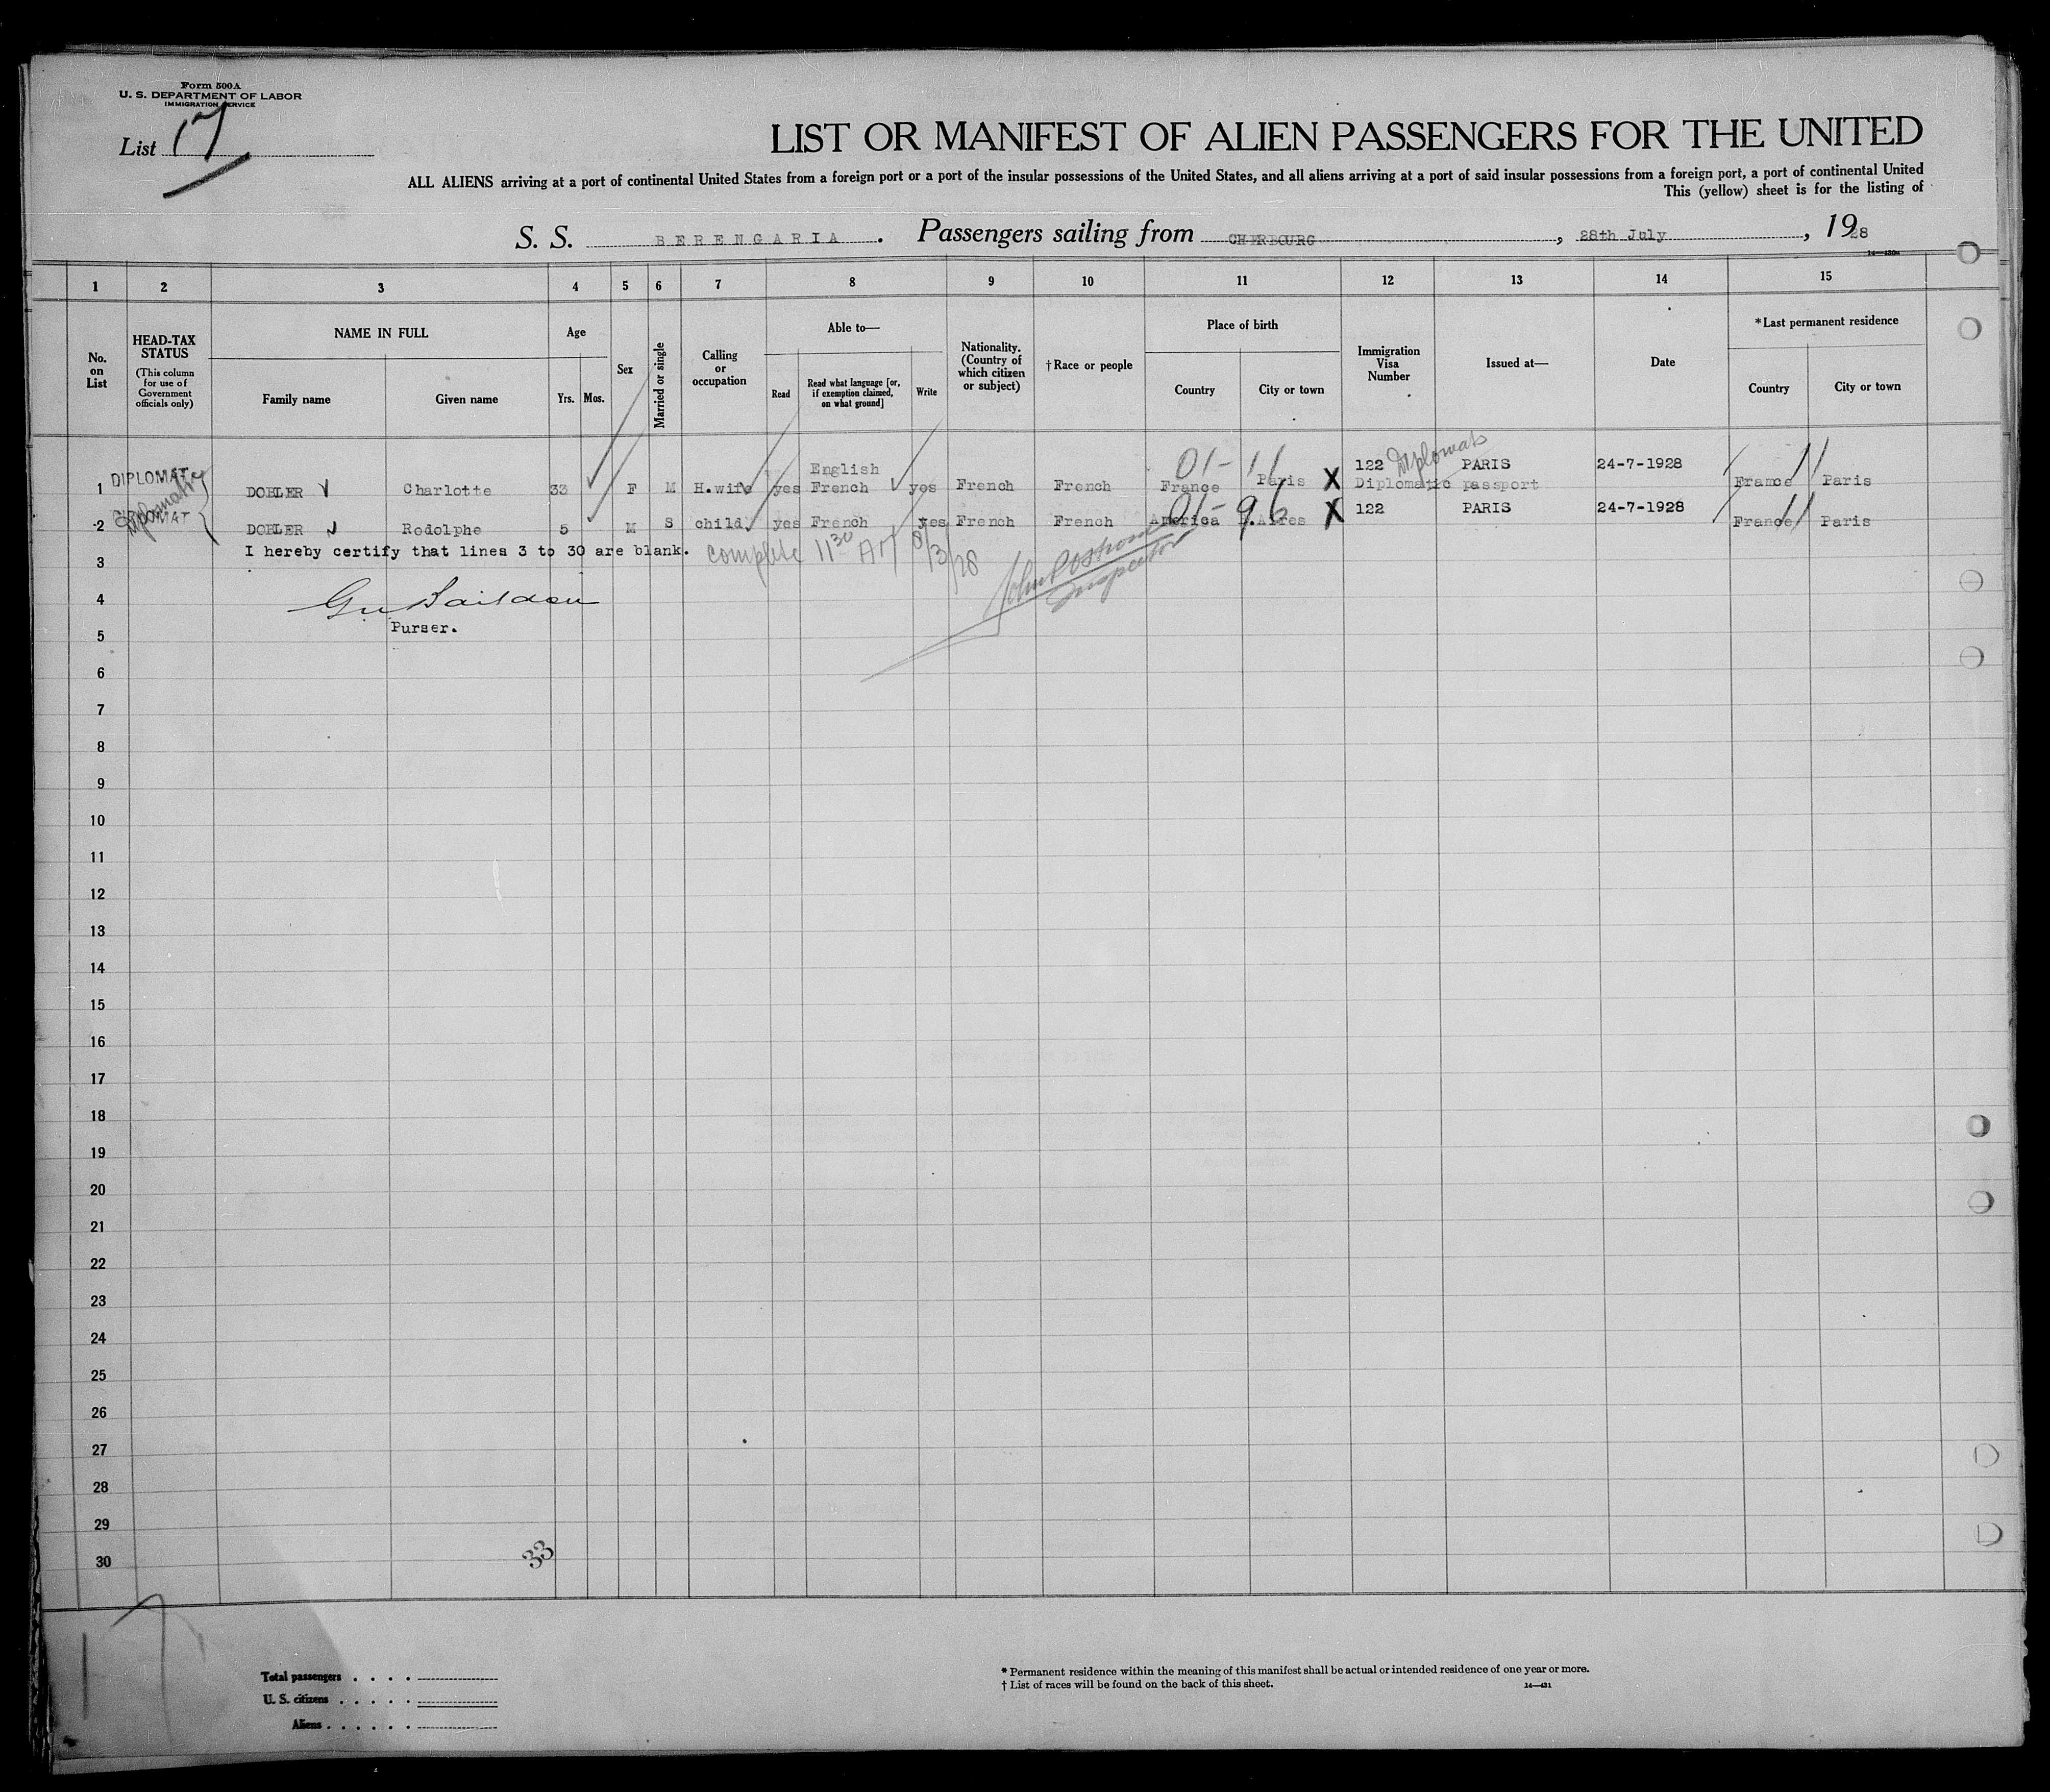 Form 500A
U. S. DEPARTMENT OF LABOR
IMMIGRATION SERVICE
List 17
LIST OR MANIFEST OF ALIEN PASSENGERS FOR THE UNITED
ALL ALIENS arriving at a port of continental United States from a foreign port or a port of the insular possessions of the United States, and all aliens arriving at a port of said insular possessions from a foreign port, a port of continental United
This (yellow) sheet is for the listing of
S. S. BERENGARIA. Passengers sailing from CHERBOURG, 28th July, 1928
14—430a
1 2 3 4 5 6 7 8 9 10 11 12 13 14 15
No. on List
HEAD-TAX STATUS
(This column for use of Government officials only)
NAME IN FULL
Family name
Given name
Age
Yrs.
Mos.
Sex
Married or single
Calling or occupation
Able to—
Read
Read what language [or, if exemption claimed, on what ground]
Write
Nationality. (Country of which citizen or subject)
†Race or people
Place of birth
Country
City or town
Immigration Visa Number
Issued at—
Date
*Last permanent residence
Country
City or town
English 01- 11 122 Diplomats PARIS 24-7-1928
1 DIPLOMAT DOBLER Charlotte 33 F M H.wife yes French yes French French France Paris X Diplomatic passport France Paris
Diplomatic
01-96 122 PARIS 24-7-1928
2 DIPLOMAT DOBLER Rodolphe 5 M S child. yes French yes French French America B.Aires X France Paris
I hereby certify that lines 3 to 30 are blank. complete 11 30 AM 8/3/28
3
Inspector
4
Purser.
5
6
7
8
9
10
11
12
13
14
15
16
17
18
19
20
21
22
23
24
25
26
27
28
29
30
33
17
Total passengers . . . .
U. S. citizens . . . . .
Aliens . . . . . .
* Permanent residence within the meaning of this manifest shall be actual or intended residence of one year or more.
† List of races will be found on the back of this sheet.
14—431